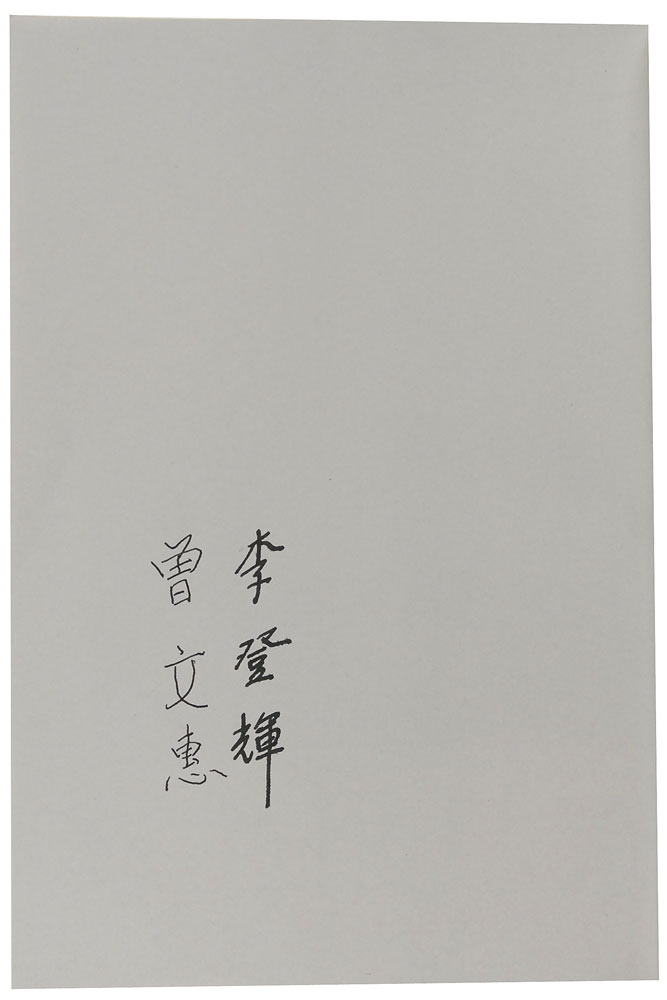 李登輝
曽文惠